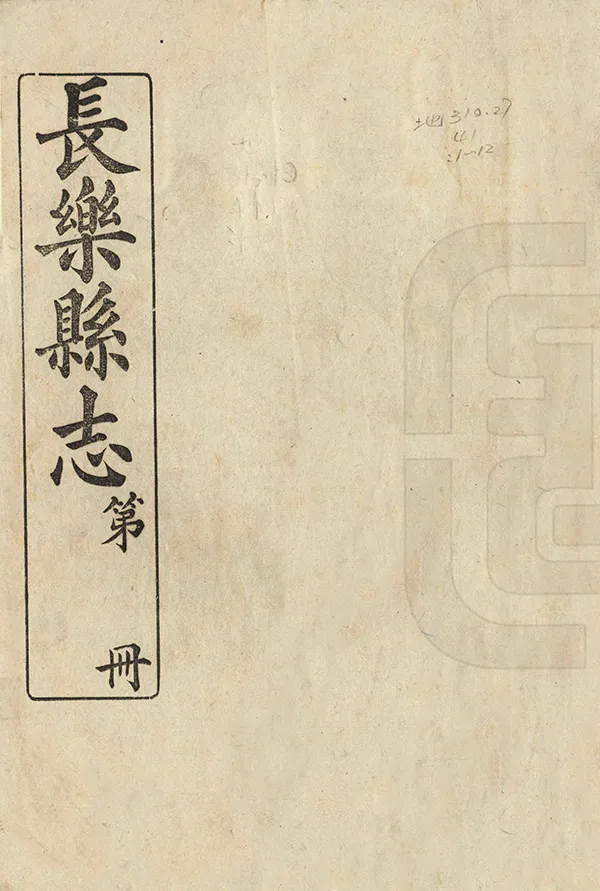 長樂縣志
第 冊
地310.27
41
:1-12